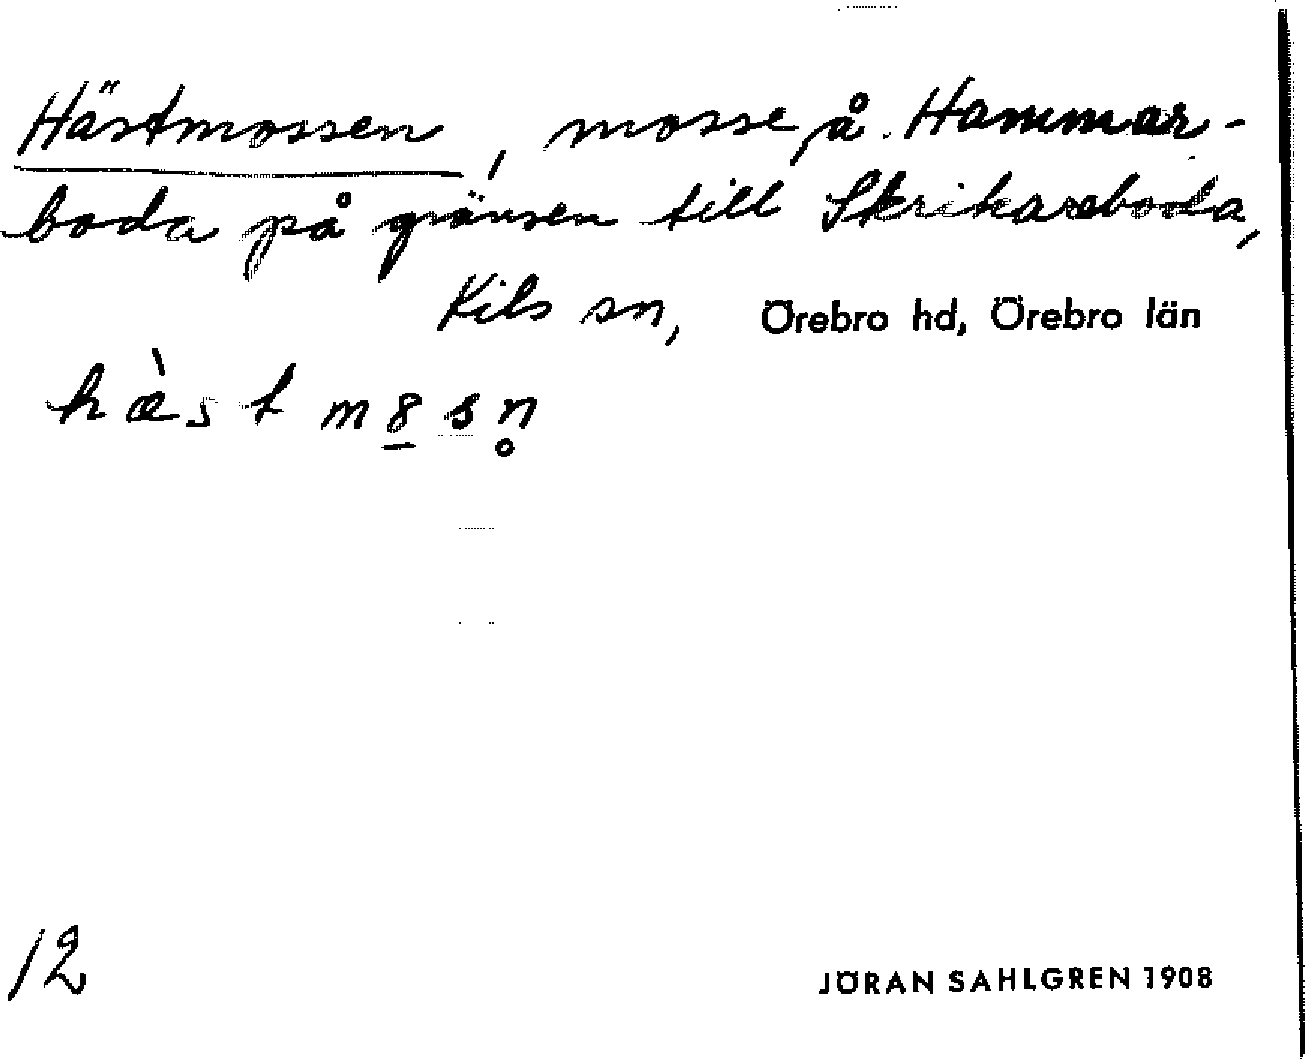 Hästmossen, mosse på Hammar-
boda på gränsen till Skrikareboda,
Kils sn, Örebro hd, Örebro län
hæ̀stm8̲sn̥
12
JÖRAN SAHLGREN 1908